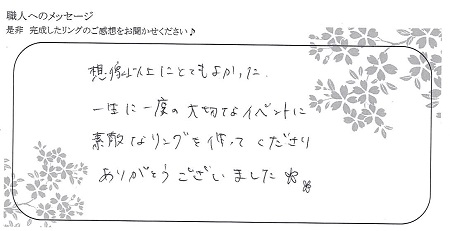 職人へのメッセージ
是非 完成したリングのご感想をお聞かせください♪
想像以上にとてもよかった.
一生に一度の大切なイベントに
素敵なリングを作ってくださり
ありがとうございました